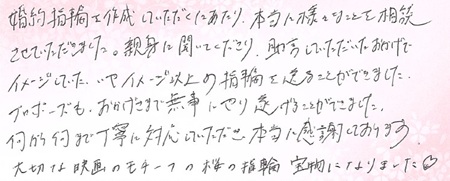 婚約指輪を作成していただくにあたり、本当に様々なことを相談
させていただきました。親身に聞いてくださり、助言していただいたおかげで
イメージしていた、いやイメージ以上の指輪を送ることができました。
プロポーズも、おかげさまで無事にやり遂げることができました。
何から何まで丁寧に対応していただき本当に感謝しております。
大切な映画のモチーフの桜の指輪 宝物になりました♡